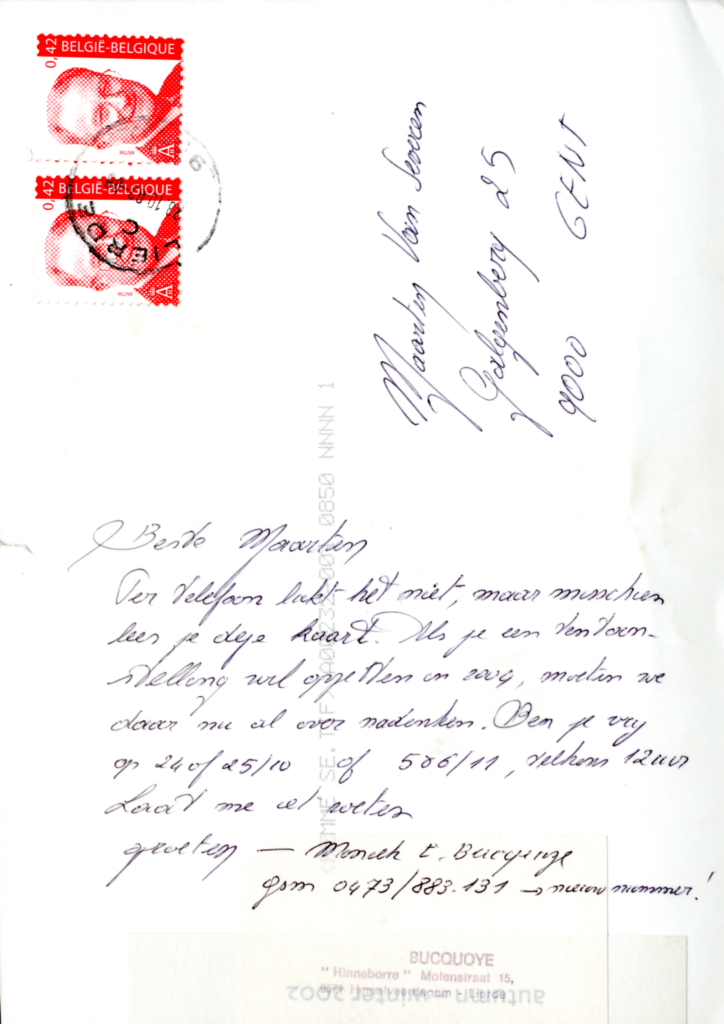 BELGIË-BELGIQUE
0,42
MVTM
A
BELGIË-BELGIQUE
0,42
MVTM
A
LIERDE
C
Maarten Van Severen
Galgenberg 25
9000 GENT
0850 NNNN 1
Beste Maarten
Per telefoon lukt het niet, maar misschien
lees je deze kaart. Als je een tentoon-
stelling wil opzetten in 2004, moeten we
daar nu al over nadenken. Ben je vrij
op 24 of 25/10 of 5 of 6/11, telkens 12 uur
Laat me iets weten
groeten — Moniek E. Bucquoye
gsm 0473/883.131 → nieuw nummer!
BUCQUOYE
"Hinneborre" Molenstraat 15,
autumn - winter 2002